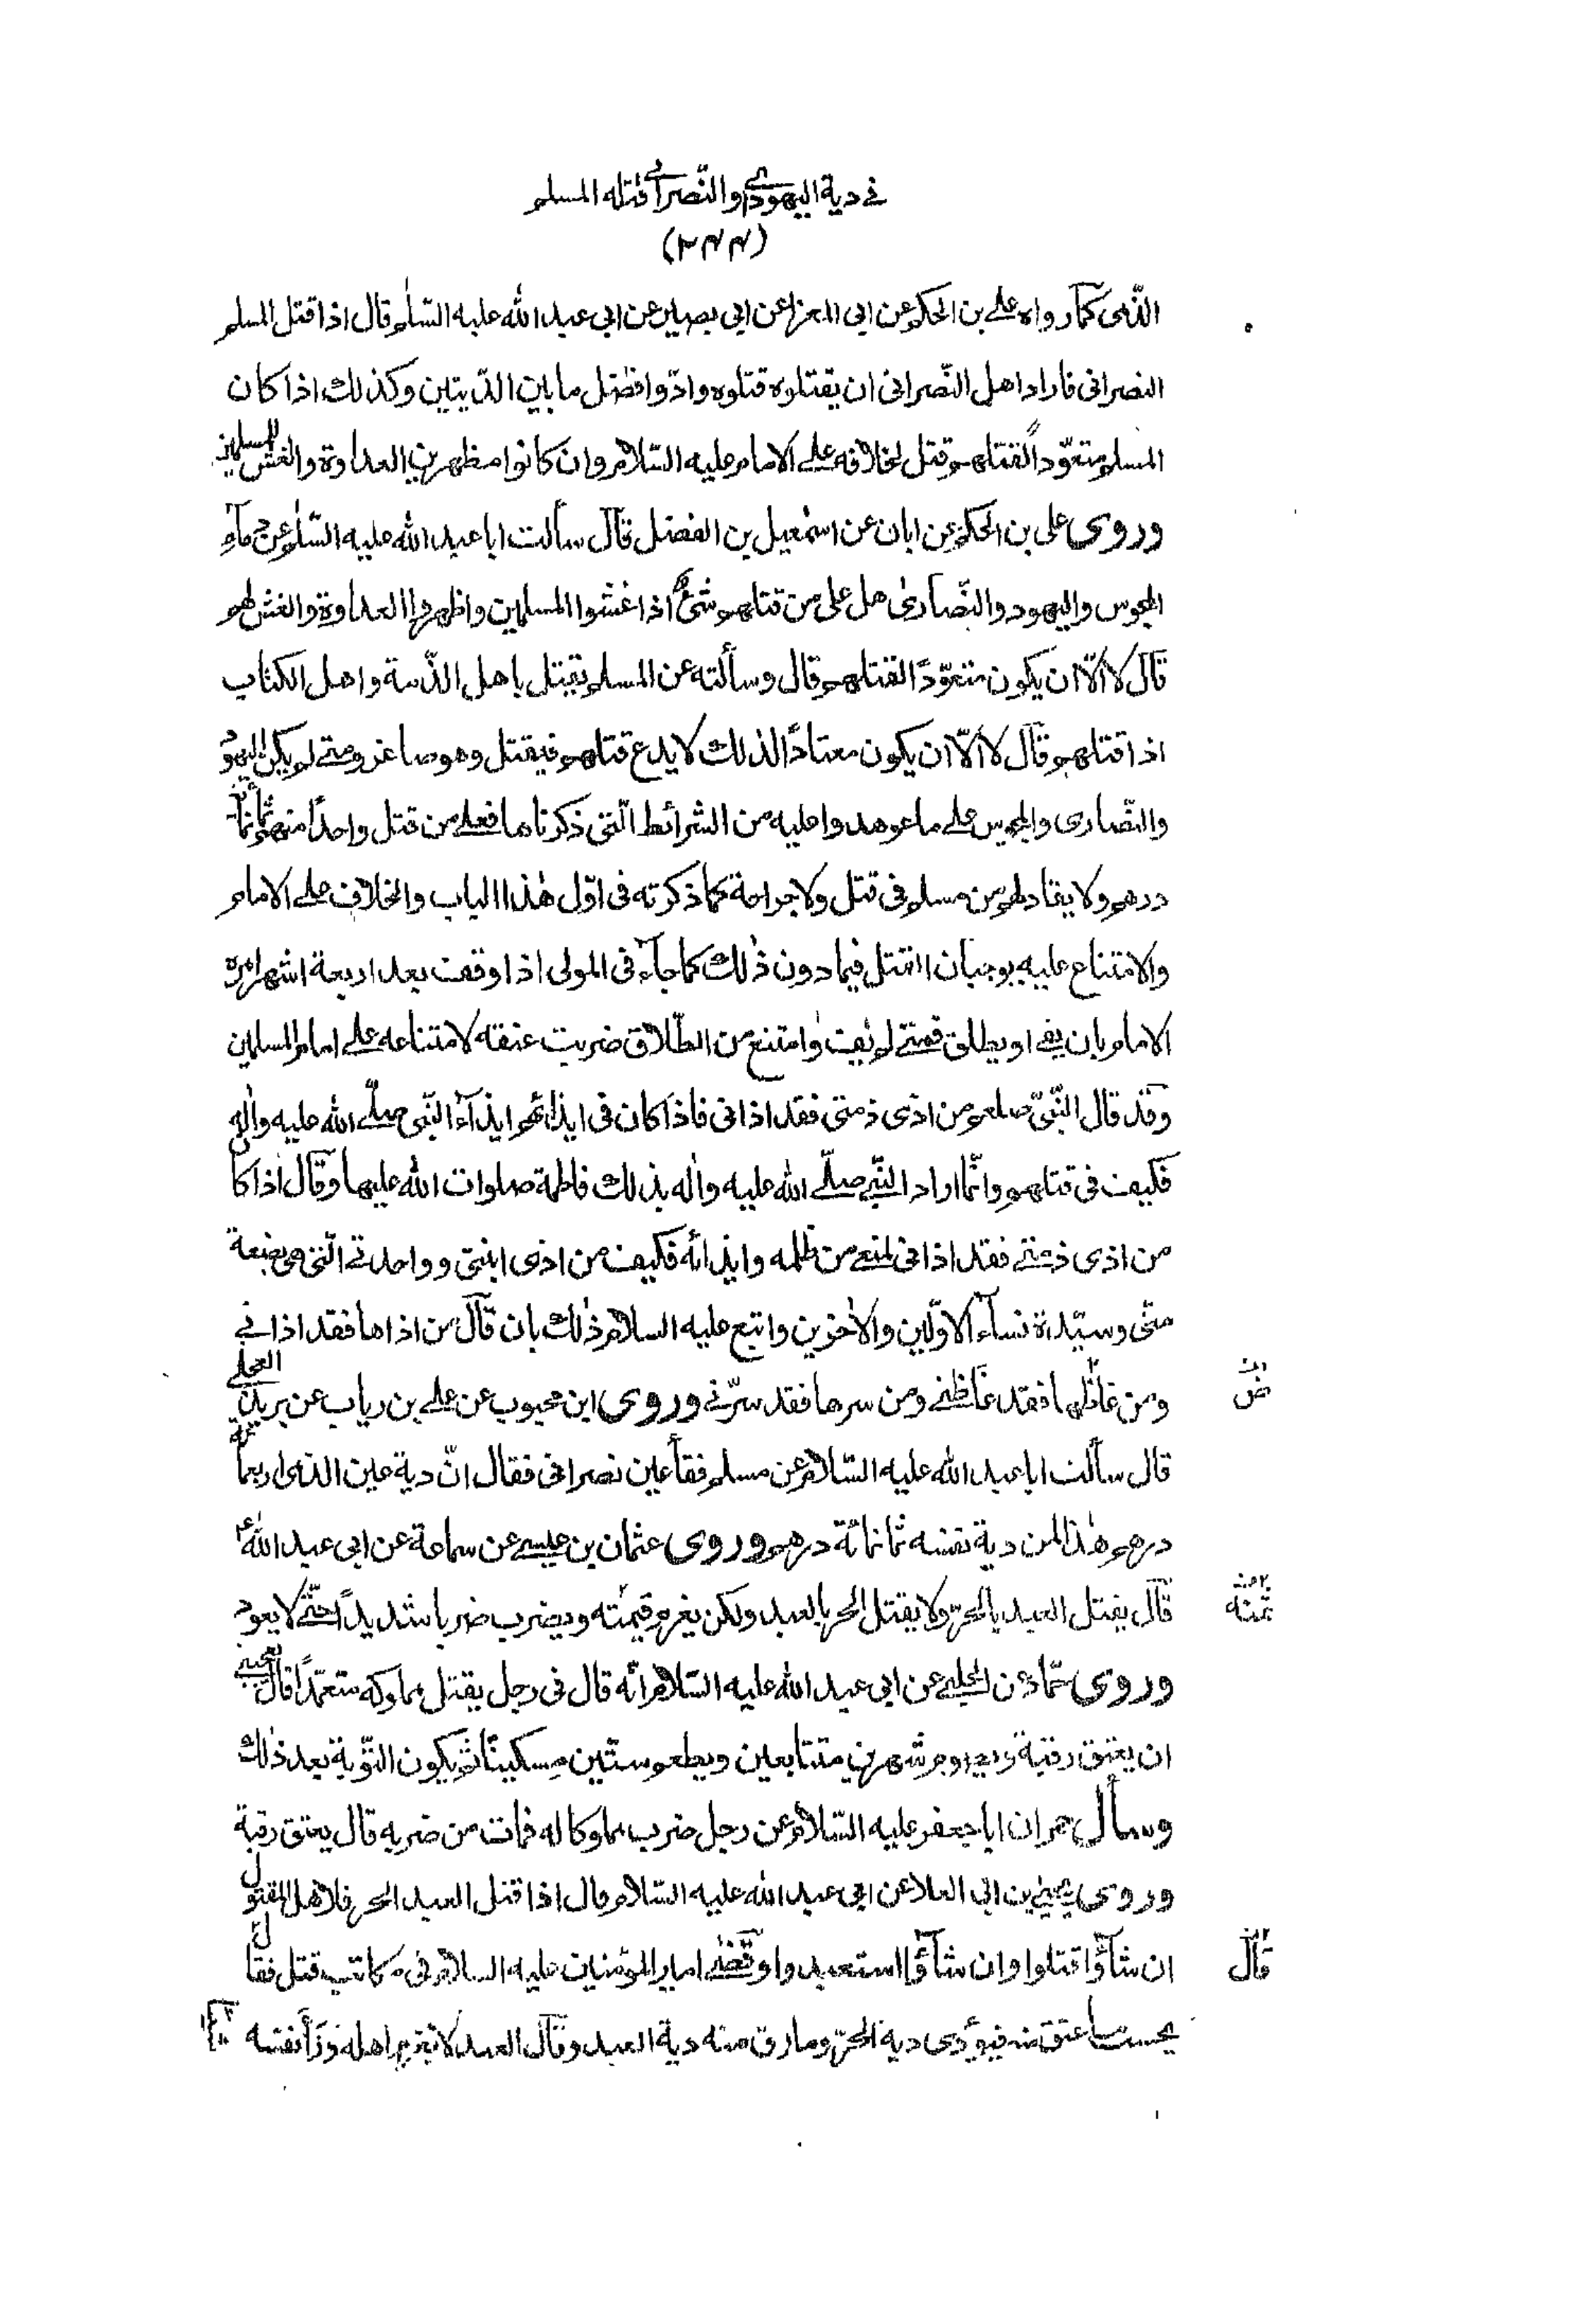 في دية اليهودي والنّصراني قتله المسلم
(٢٤٤)
الذّمى كمآ رواه على بن الحكم عن ابى المعزا عن ابى بصير عن ابى عبد الله عليه السّلم قال اذا قتل المسلم
النصرانى فاراد اهل النّصرانى ان يقتلوه قتلوه وادّوا فضل ما بين الدّيتين وكذلك اذا كان
المسلم متعوّدًا لقتلهم قتل لخلافه على الامام عليه السّلام وان كانوا مظهرين العداوة والغشّ للمسلمين
وروى على بن الحكم عن ابان عن اسمٰعيل بن الفضل قال سألت ابا عبد الله عليه السّلم عن دمآء
المجوس واليهود والنّصارىٰ هل على من قتلهم شئ اذا غشّوا المسلمين واظهروا العداوة والغش لهم
قال لا الّا ان يكون متعوّدًا لقتلهم قال وسألته عن المسلم يقتل باهل الذّمة واهل الكتاب
اذا قتلهم قال لا الّا ان يكون معتادًا لذلك لا يدع قتلهم فيقتل وهو صاغر ومتى لم يكن اليهود
والنّصارى والمجوس على ما عوهدوا عليه من الشرائط الّتى ذكرناها فعلى من قتل واحدًا منهم ثمانمأة
درهم ولا يقاد لهم من مسلم فى قتل ولا جراحة كما ذكرته فى اوّل هٰذا الباب والخلاف على الامام
والامتناع عليه يوجبان القتل فيما دون ذٰلك كما جآء فى المولى اذا وقف بعد اربعة اشهر امره
الامام بان يفى او يطلق فمتى لم يفٖ وامتنع من الطّلاق ضربت عنقه لامتناعه على امام المسلمين
وقد قال النّبىّ صلعم من اذى ذمتى فقد اذانى فاذا كان فى ايذائهم ايذآء النّبى صلّى الله عليه واٰله
فكيف فى قتلهم وانّما اراد النّبى صلّى الله عليه واٰله بذلك فاطمة صلوات الله عليها وقال اذا كان
من اذى ذمتى فقد اذانى لمنعى من ظلمه وايذائه فكيف من اذى ابنتى وواحدتى الّتى هى بضعة
منّى وسيّدة نسآء الاوّلين والاٰخرين واتبع عليه السلام ذٰلك بان قال من اذاها فقد اذانى
ومن غاظها فقد غاظنى ومن سرها فقد سرّنى وروى ابن محبوب عن على بن رياب عن بريد العجلى
قال سألت ابا عبد الله عليه السّلام عن مسلم فقأ عين نصرانى فقال انّ دية عين الذّمى اربعمأة
درهم هٰذا لمن دية نفسه ثمانمائة درهم وروى عثمان بن عيسى عن سماعة عن ابى عبد الله ع
قال يقتل العبد بالحرّ ولا يقتل الحر بالعبد ولكن يغرم قيمته ويضرب ضربا شديدًا حتّى لا يعود
ثمنه
وروى حمّاد عن الحلبى عن ابى عبد الله عليه السّلام انّه قال فى رجل يقتل مملوكه متعمّدًا قال يعجبنى
ان يعتق رقبة ويصوم شهرين متتابعين ويطعم ستّين مسكينًا ثمّ يكون التّوبة بعد ذٰلك
وسأل حمران ابا جعفر عليه السّلام عن رجل ضرب مملوكا له فمات من ضربه قال يعتق رقبة
وروى يحيى بن ابى العلا عن ابى عبد الله عليه السّلام قال اذا قتل العبد الحر فلاهل المقتول
ان شآؤا قتلوا وان شآؤا استعبدوا وقضى امير المؤمنين عليه السلام فى مكاتب قتل فقال
قال
يحسب ما اعتق منه فيؤدى دية الحرّ وما رق منه دية العبد وقال العبد لا يغرم اهله وزأ نفسه